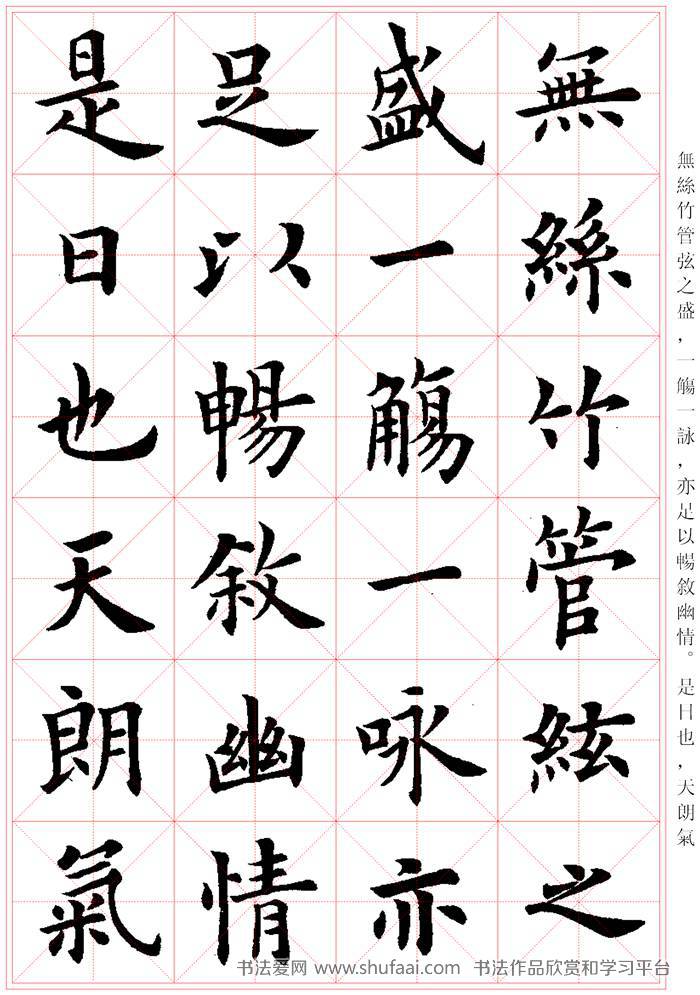 無絲竹管絃之
盛一觴一咏亦
足以暢敘幽情
是日也天朗氣
無絲竹管弦之盛，一觴一詠，亦足以暢敘幽情。是日也，天朗氣
书法爱网 www.shufaai.com 书法作品欣赏和学习平台